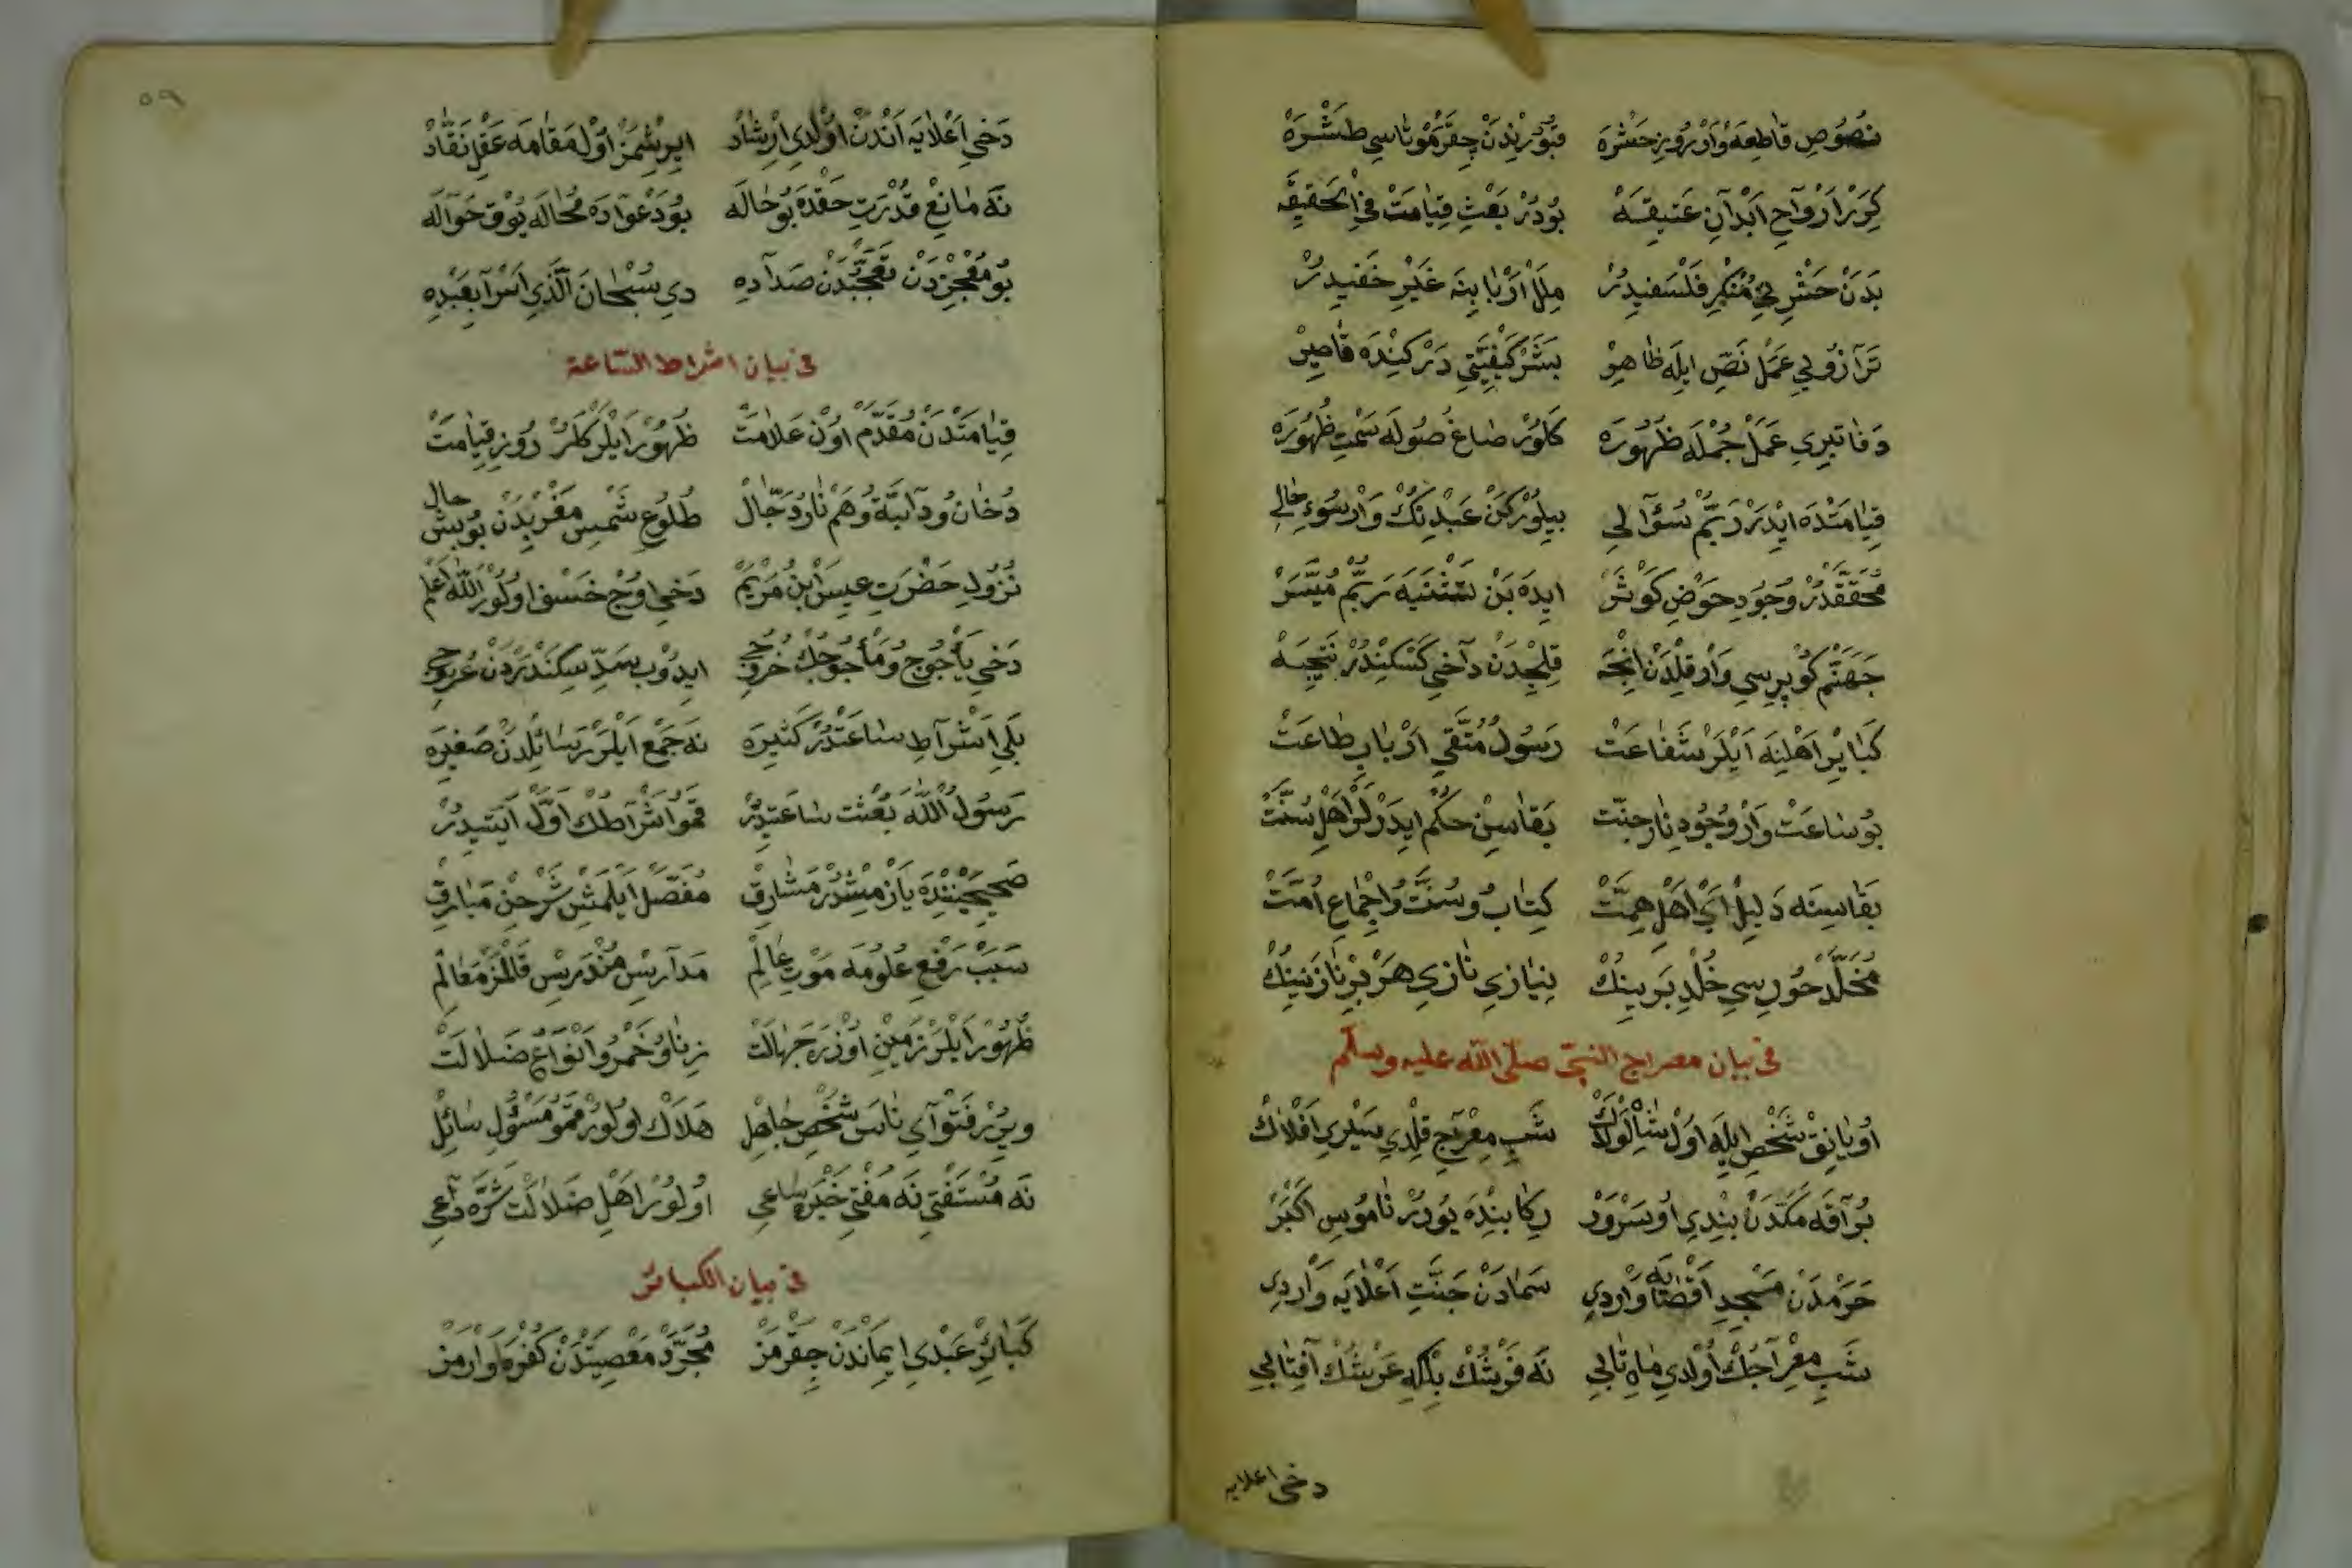 نصُوصِ قاطعه وَارْ رُوزِ حَشْرَه قبُورْندَنْ چِقَرْ مَوْتاسي طَشْرَه
كِرَرْ ارْوَاح ابْدَانِ عَتيقِيَه بُودُرْ بَعْثِ قِيَامَتْ فِي الْحَقيقَه
بَدَنْ حَشْرِ لي مُنْكِرْ فَلْسَفيدُرْ مِلَلْ ارْبَابِنَه غَيْرِ خَفيدِرْ
تَرَازُوِي عَمَلْ نَصّ ايلَه ظاهِرْ بَشَرْ كَيْفِيَّتِي دَرْكِنْدَه قاصِرْ
دَفاتيرِي عَمَلْ جُمْلَه ظُهُورَه كَلُورْ صاغ صُولَه سَمْتِ ظُهُورَه
قِيَامَتْدَه ايدَرْ رَبُّمْ سُؤَالي بيلُورْكَنْ عَبْدِنِكْ وَارْ سُوءِ حَالي
مُحَقَّقدُرْ وُجُودِ حَوْضِ كَوْثَرْ ايدَه بَنْ تَشْنَيَه رَبُّمْ مُيَسَّرْ
جَهَنَّم كُوپريسي وَارْ قِلْدَنْ اينْجَه قِلِجْدَنْ دَاخي كَسْكِنْدُرْ نَتيجَه
كَبَايِرْ اَهْلِنَه اَيْلَرْ شَفَاعَتْ رَسُولْ مُتَّقِي ارْبَابِ طَاعَتْ
بُو سَاعَتْ وَارْ وُجُودِ نَارِ جَنّت بَقَاسِنْ حُكْم ايدَرْلَرْ اَهْلِ سُنَّتْ
بَقَاسِنَه دَليل اَيْ اَهْلِ هِمَّتْ كِتَابُ وسُنَّتُ وَاِجْمَاعِ اُمَّتْ
مُخَلَّدْ حُورِسِي خُلْدِ بَرينِكْ نِيَازِي نَازِي هَرْ بِرْ نَازَنينِكْ
في بيان معراج النبيّ صلّى الله عليه وسلّم
اُويَانِقْ شَخْصِ ايلَه اُولْ شَاهِ لَوْلَاكْ شَبِ مِعْرَاجِ قِلْدِي سَيْرِي اَفْلَاكْ
بُرَاقَه مَكَّدَنْ بِنْدِي اُو سَرْوَرْ رِكَابِنْدَه يُورُرْ نَامُوسِ اَكْبَرْ
حَرَمْدَنْ مَسْجِدِ اَقْصَايَه وَارْدِي سَمَادَنْ جَنَّتِ اَعْلَايَه وَارْدِي
شَبِ مِعْرَاجِكْ اُولْدِي مَاهِ تَابي نَه فَرْشُكْ بَلْكِه عَرْشُكْ آفِتَابي
دخي اعلايه
٥٩
دَخي اَعْلَايَه اَنْدَنْ اُولْدِي اِرْشَادْ ايرِشْمَزْ اُولْ مَقَامَه عَقْلِ نَقَّادْ
نَه مَانِعْ قُدْرَتِ حَقْدَه بُو حَالَه بُو دَعْوَادَه مُحَالَه يُوقْ حَوَالَه
بُو مُعْجِزْدَنْ تَعَجُّبْدَنْ صَدَادِه دي سُبْحَانَ الَّذي اَسْرَا بِعَبْدِه
في بيان اشراط السّاعة
قِيَامَتْدَنْ مُقَدَّمْ اوُنْ عَلَامَتْ ظُهُورْ ايْلَرْ كَلُرْ رُوزِ قِيَامَتْ
دُخَان وُدَابَّة وُهَمْ نَارُ دَجَّالْ طُلُوعِ شَمْسِ مَغْرِبْدَنْ بُو بِشْ حال
نُزُولِ حَضْرَتِ عيسَى ابْنُ مَرْيَمْ دَخي اوُچْ خَسْف اوُلُورْ الله اَعْلَمْ
دَخي يَأْجُوج وُمَأْجُوجِكْ خُرُوجي ايدُوب سَدِّ سِكَنْدَرْدَنْ عُرُوجي
بَلي اَشْرَاطِ سَاعَتْدُرْ كَثيرَه نَه جَمْع ايْلَرْ رَسَائِلْدَنْ صَغيرَه
رَسُولُ الله بَعْثت سَاعَتِدُرْ قمُو اَشْرَاطِكْ اوَّلْ آيَتيدُرْ
صَحيحَيْنْدَه يَازْمِشْدُرْ مَشَارِقْ مُفَصَّلْ ايْلَمَشْ شَرْحِنْ مَبَارِقْ
سَبَبْ رَفْعِ عُلُومَه مَوْتِ عَالِمْ مَدَارِسْ مُنْدَرِسْ قَالْمَزْ مَعَالِمْ
ظُهُورْ ايْلَرْ زَمينْ اوُزْرَه جَهَالَتْ زِنَاوُ خَمْرُ وَانْوَاعِ ضَلَالَتْ
ويرُرْ فَتْوَاي نَاسَ شَخْصِ جَاهِلْ هَلَاكْ اوُلُورْ قمُو مَسْؤُلِ سَائِلْ
نَه مُسْتَفْتي نَه مُفْتي خَيْرَه سَاعي اوُلُورْ اَهْلِ ضَلَالَتْ شَرَّه دَاعي
في بيان الكبائر
كَبَائِرْ عَبْدِي ايمَانْدَنْ چِقَرْمَزْ مُجَرَّدْ مَعْصِيَتْدَنْ كُفْرَه وَارْمَزْ